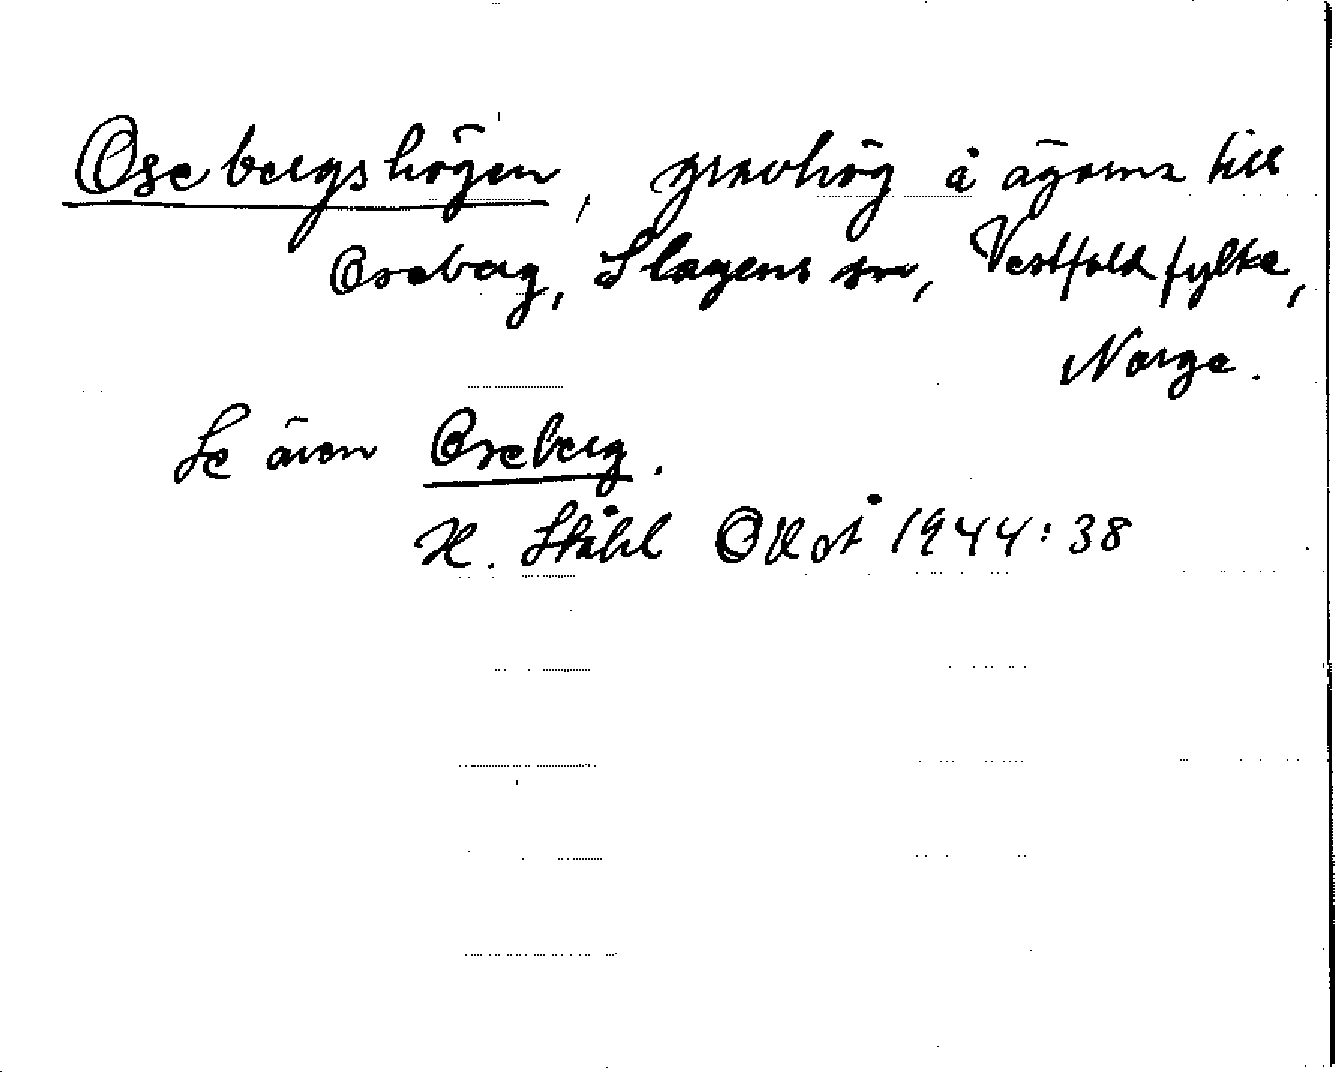 Osebergshögen, gravhög å ägorna till
Oseberg, Slagens sn, Vestfold fylke,
Norge.
Se även Oseberg.
H. Ståhl OUoÅ 1944:38